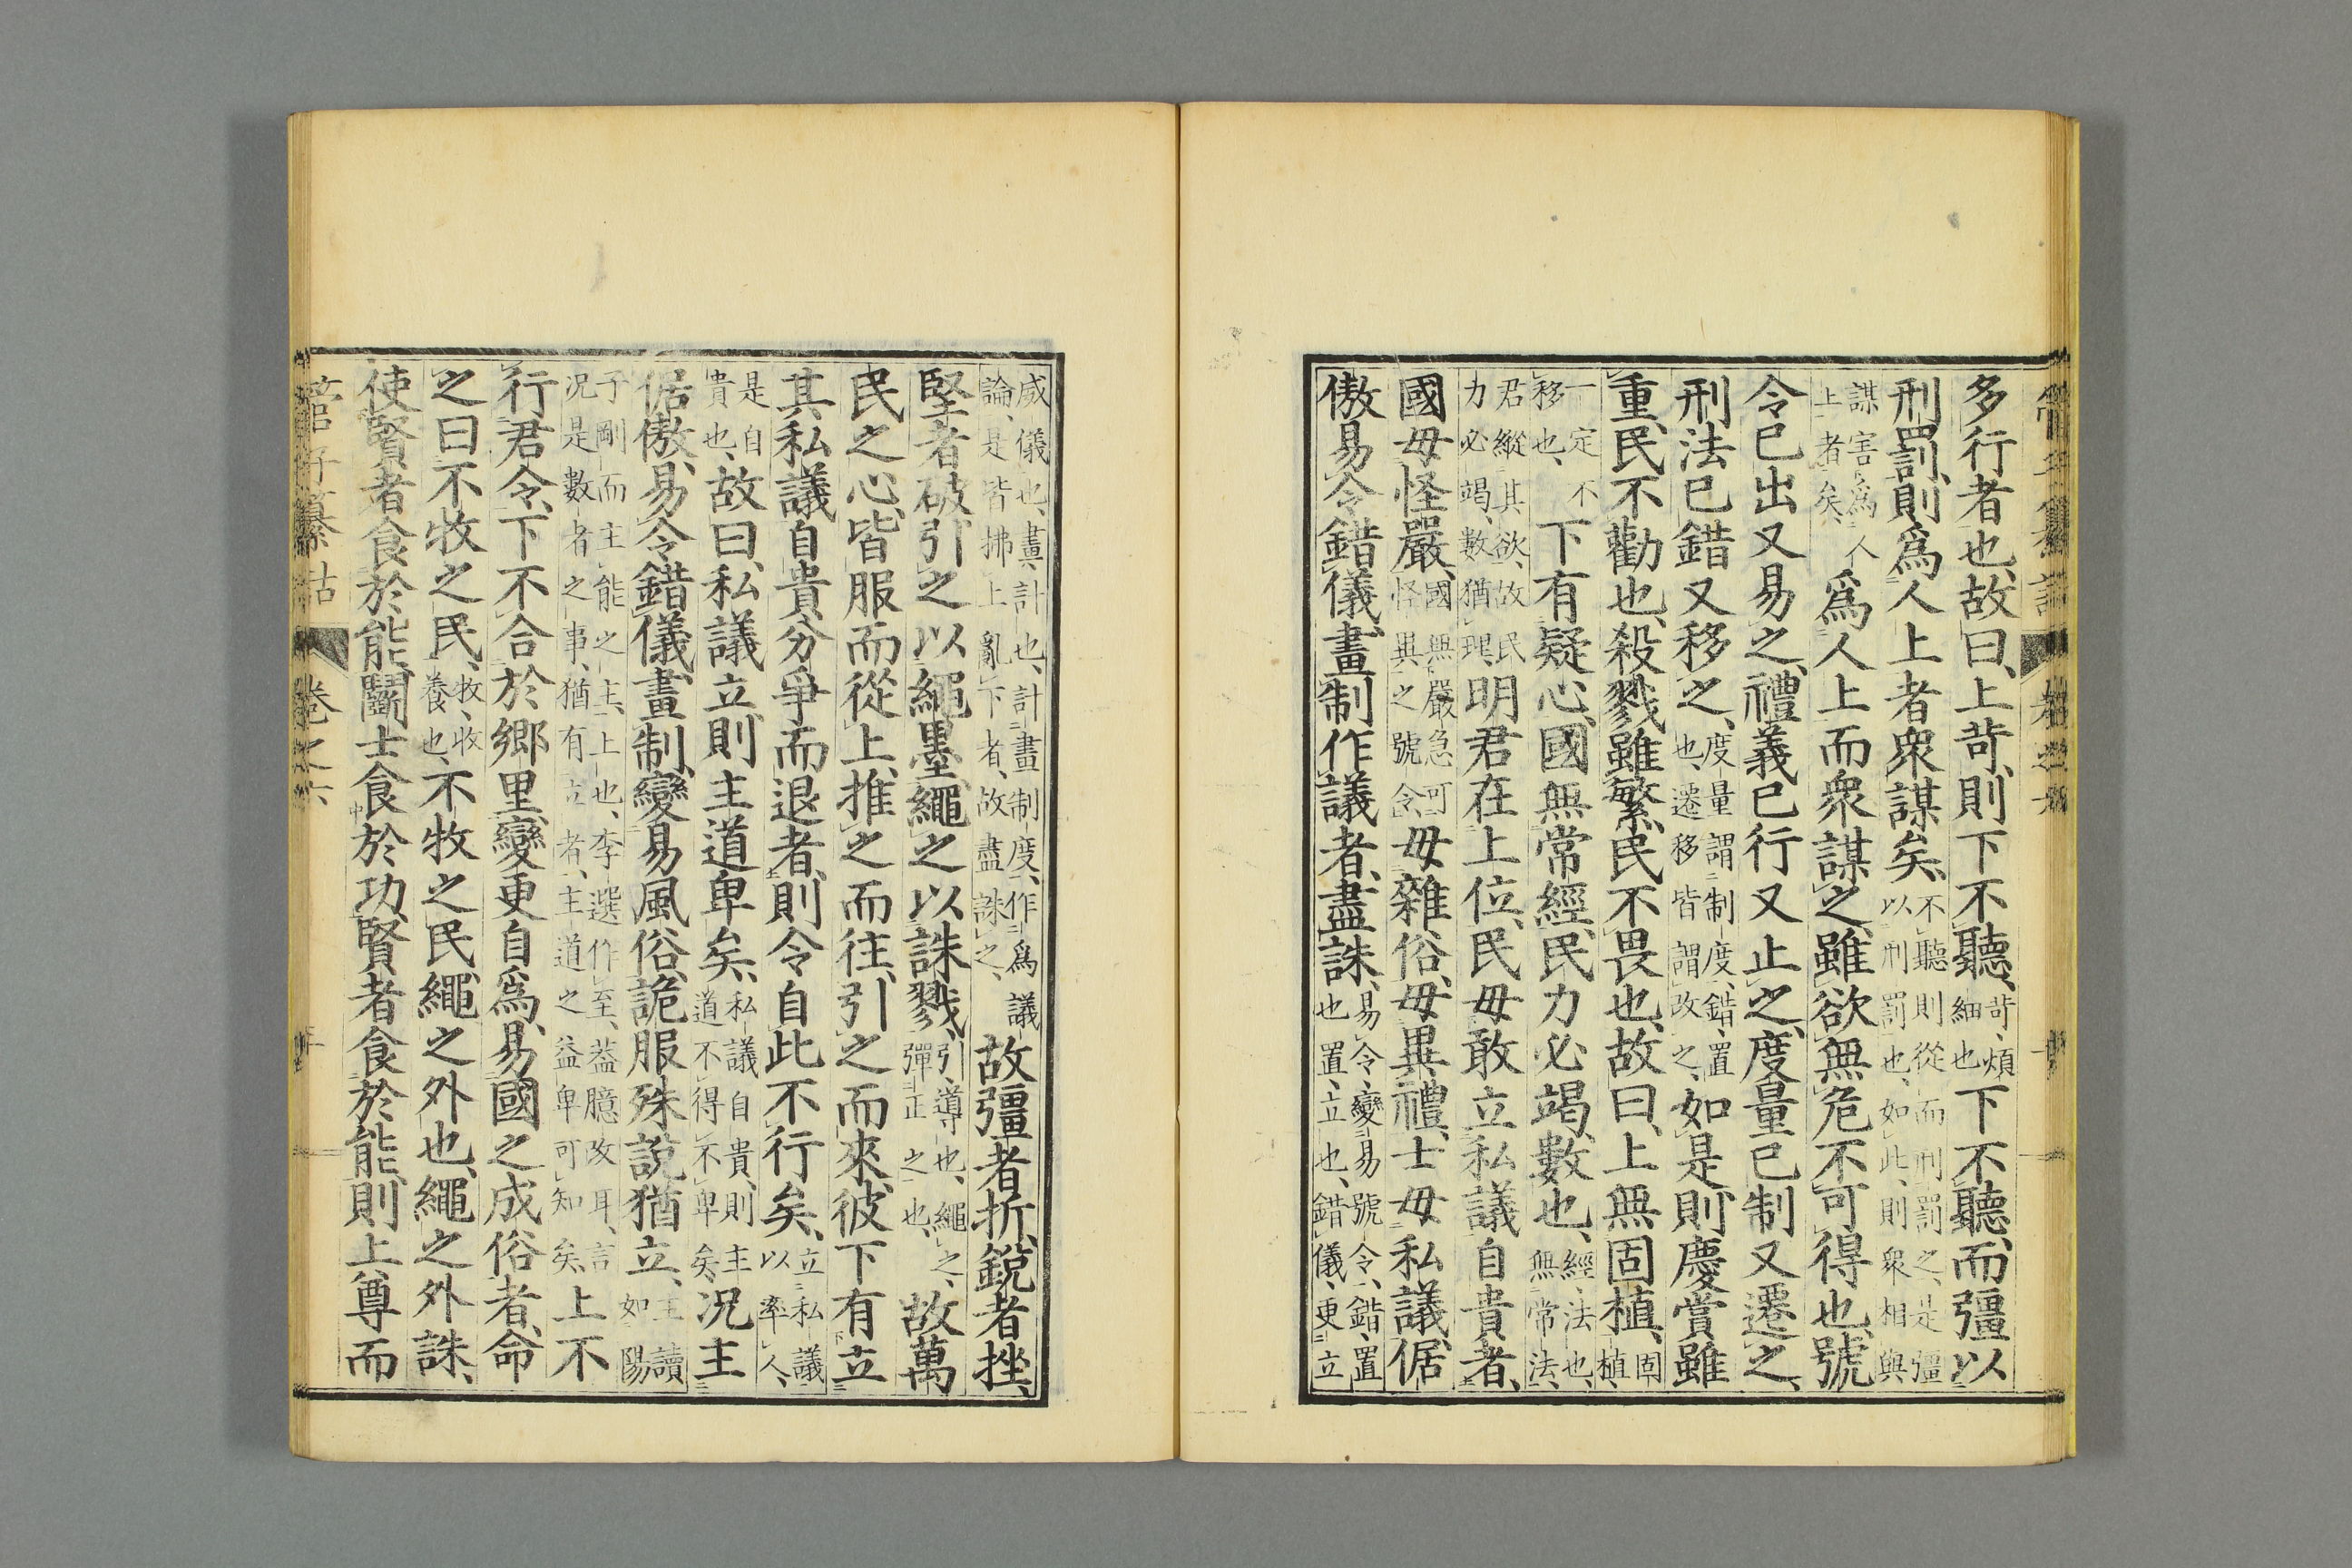 多行者也、故曰、上苛、則下不聽、苛、煩細也下不聽、而彊以
刑罰、則爲人上者衆謀矣、不聽則從而刑罰之、是彊以刑罰也、如此、則衆相與
謀害爲人上者矣、爲人上而衆謀之、雖欲無危、不可得也、號
令已出又易之、禮義已行又止之、度量已制又遷之、
刑法已錯又移之、度量謂制度、錯、置也、遷移皆謂改之、如是、則慶賞雖
重、民不勸也、殺戮雖繁、民不畏也、故曰、上無固植、固植、
一定不移也、下有疑心、國無常經、民力必竭、數也、經、法也、無常法、
君縱其欲、故民力必竭、數猶理、明君在上位、民毋敢立私議自貴者、
國毋怪嚴、國無嚴急可怪異之號令、毋雜俗、毋異禮、士毋私議、倨
傲易令、錯儀畫制作議者、盡誅、易令、變易號令、錯、置也置、立也、錯儀、更立
威儀也、畫、計也、計畫制度、作爲議論、是皆拂上亂下者、故盡誅之、故彊者折、銳者挫、
堅者破、引之以繩墨、繩之以誅戮、引、導也、繩之、彈正之也、故萬
民之心、皆服而從上、推之而往、引之而來、彼下有立
其私議自貴、分爭而退者、則令自此不行矣、立私議以率人、
是自貴也、故曰、私議立則主道卑矣、私議自貴、則主道不得不卑矣、况主
倨傲、易令錯儀、畫制、變易風俗、詭服殊說猶立、主讀如陽
子剛而主能之主、上也、李選作至、蓋臆改耳、言况是數者之事、猶有立者、主道之益卑可知矣、上不
行君令、下不合於鄉里、變更自爲、易國之成俗者、命
之曰不牧之民、牧、收養也、不牧之民、繩之外也、繩之外誅、
使賢者食於能、鬭士食於功、賢者食於能、則上尊而
管子纂詁 卷之六